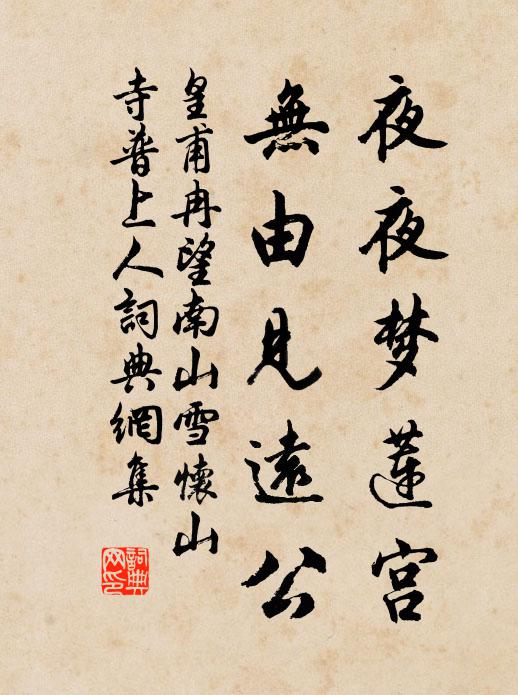 夜夜梦蓮宫
無由見遠公
皇甫冉望南山雪懷山
寺普上人詞典網集
詞典网印